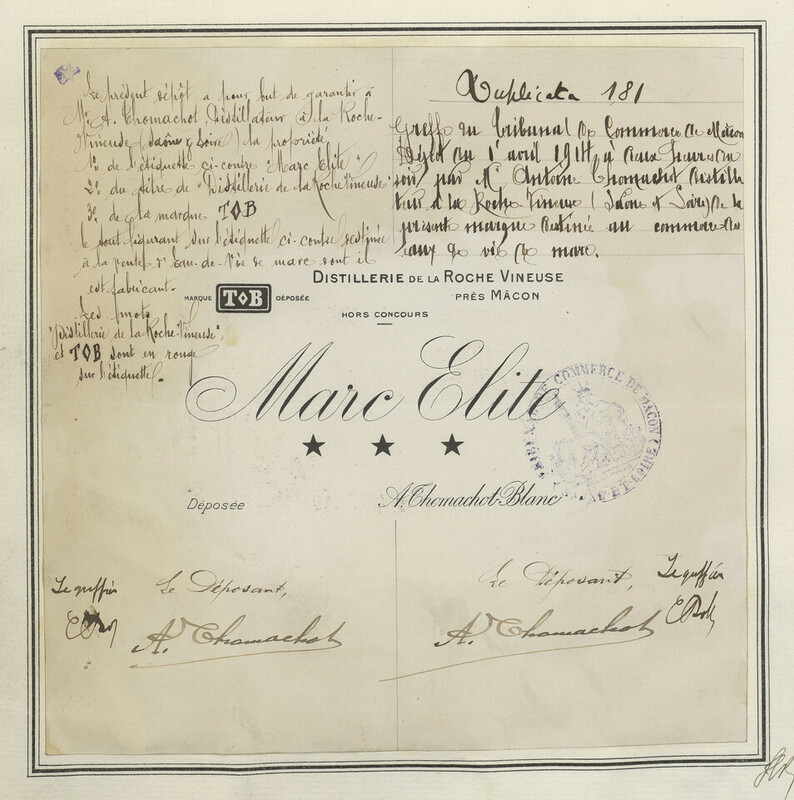 Le présent dépôt a pour but de garantir à
Mr A. Thomachot, Distillateur à la Roche-
Vineuse (Saône & Loire) la propriété
1° de l'étiquette ci-contre "Marc Elite"
2° du titre de "Distillerie de la Roche Vineuse"
3° de la marque TOB
le tout figurant sur l'étiquette ci-contre destinée
à la vente d'eau-de-vie de marc dont il
est fabricant.
Les mots
"Distillerie de la Roche-Vineuse",
et TOB sont en rouge
sur l'étiquette.
Duplicata 181
Greffe du Tribunal de Commerce de Mâcon
Dépôt du 1er avril 1914, à deux heures du
soir, par Mr Antoine Thomachot distilla
teur à la Roche Vineuse (Saône et Loire) de la
présente marque destinée au commerce des
eaux de vie de marc.
DISTILLERIE DE LA ROCHE VINEUSE
MARQUE TOB DÉPOSÉE
PRÈS MÂCON
HORS CONCOURS
Marc Elite
TRIBUNAL DE COMMERCE DE MACON (SAÔNE-ET-LOIRE)
Déposée
A. Thomachot-Blanc
Le greffier
Le Déposant,
A. Thomachot
Le Déposant,
Le greffier
A. Thomachot